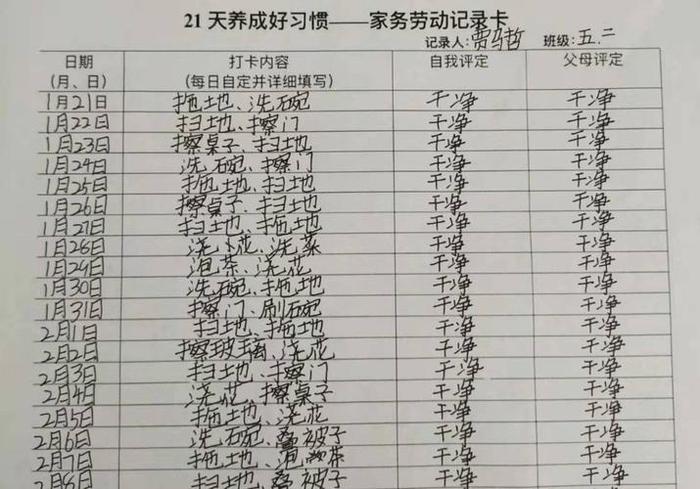 21天养成好习惯——家务劳动记录卡
记录人:贾马哲 班级:五.二
日期 打卡内容 自我评定 父母评定
(月、日) (每日自定并详细填写)
1月21日 拖土地、洗石碗 干净 干净
1月22日 扫土地、擦门 干净 干净
1月23日 擦桌子、扫土地 干净 干净
1月24日 洗石碗、擦门 干净 干净
1月25日 拖土地、扫土地 干净 干净
1月26日 擦桌子、扫土地 干净 干净
1月27日 扫土地、拖土地 干净 干净
1月26日 浇花、洗菜 干净 干净
1月29日 泡茶、浇花 干净 干净
1月30日 洗碗、拖地 干净 干净
1月31日 擦门、刷碗 干净 干净
2月1日 扫地、拖地 干净 干净
2月2日 擦玻璃、浇花 干净 干净
2月3日 扫地、擦门 干净 干净
2月4日 浇花、擦桌子 干净 干净
2月5日 拖地、浇花 干净 干净
2月6日 洗碗、叠被子 干净 干净
2月7日 拖地、泡茶 干净 干净
2月8日 扫地、叠被子 干净 干净